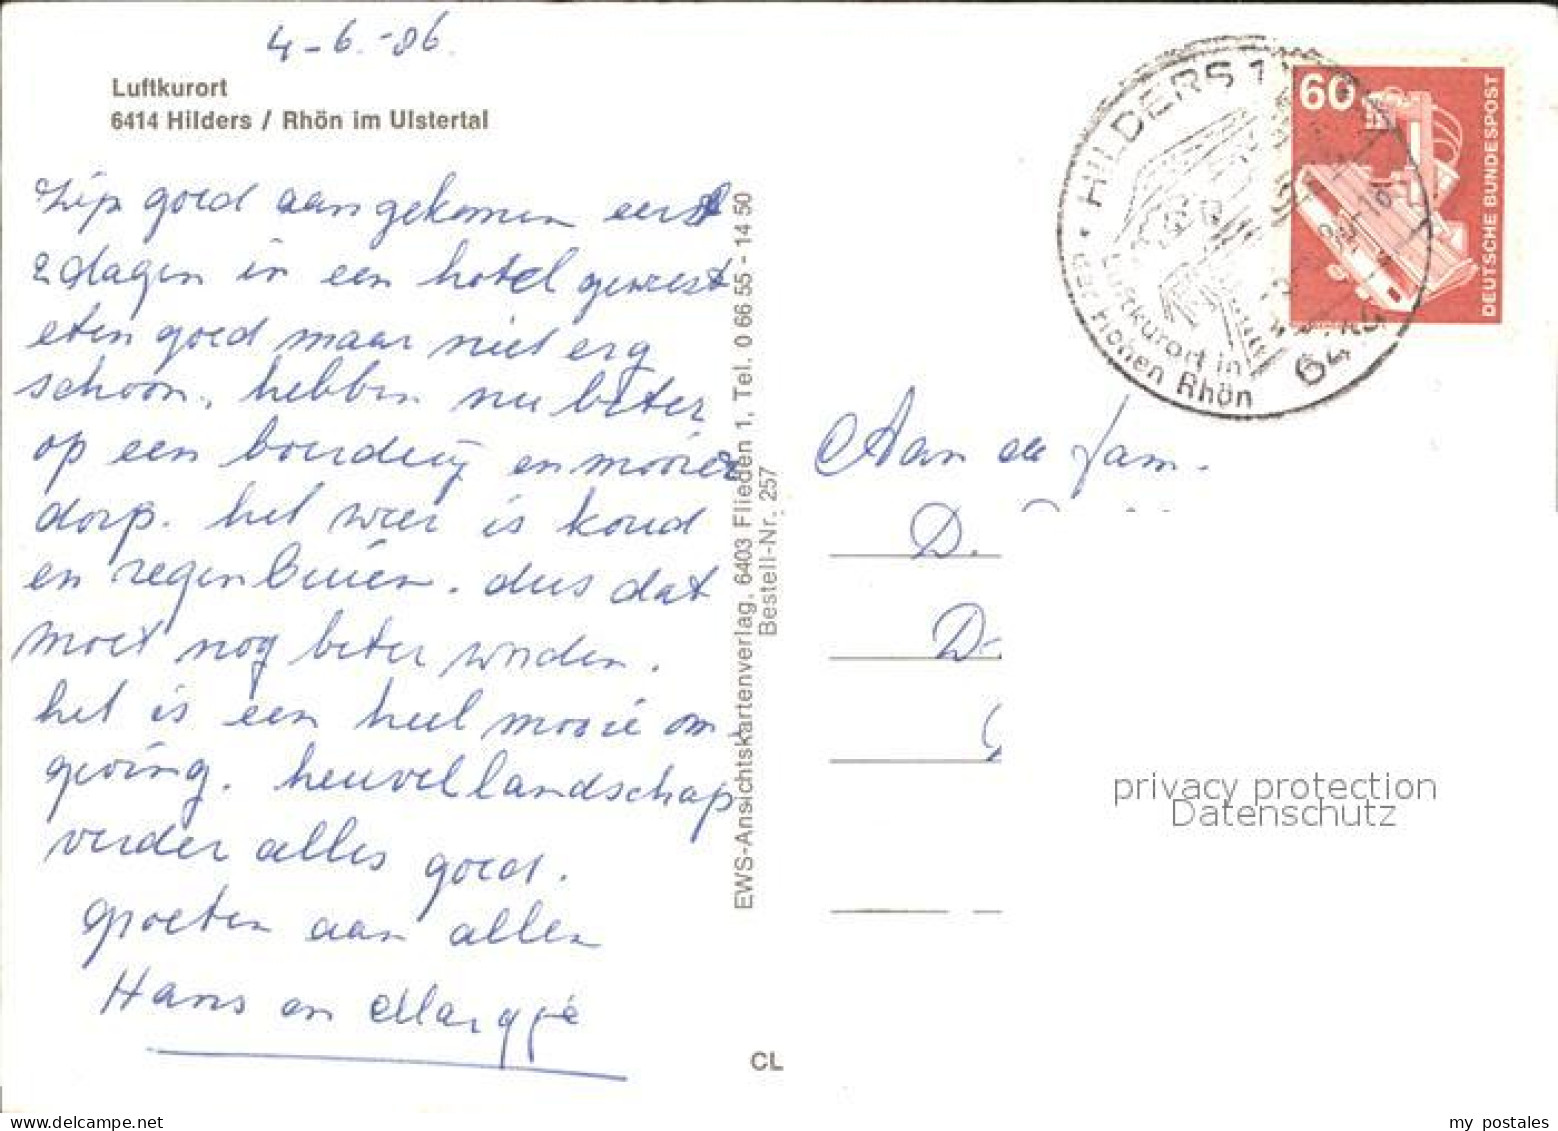 4-6.-86.
Luftkurort
6414 Hilders / Rhön im Ulstertal
Zijn goed aangekomen eerst
2 dagen in een hotel geweest
eten goed maar niet erg
schoon, hebben nu beter
op een boerderij en mooier
dorp. het weer is koud
en regenbuien. dus dat
moet nog beter worden.
het is een heel mooie om
geving. heuvellandschap
verder alles goed.
groeten aan allen
Hans en Margje
EWS-Ansichtskartenverlag, 6403 Flieden 1, Tel. 0 66 55 - 14 50
Bestell-Nr. 257
CL
HILDERS 1
Luftkurort in
der Hohen Rhön
60
DEUTSCHE BUNDESPOST
Aan de fam.
D.
privacy protection
Datenschutz
my postales